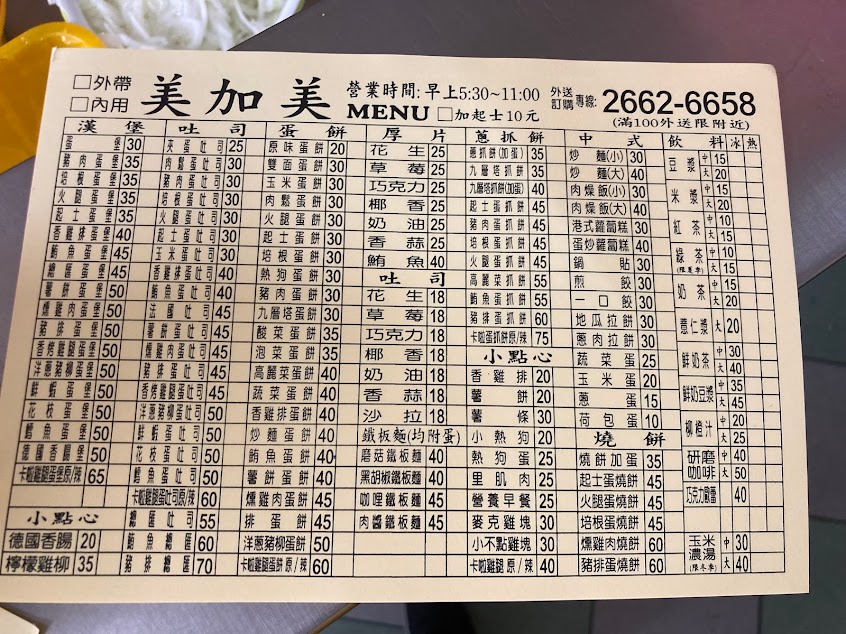 □外帶
□內用
美加美
營業時間:早上5:30~11:00
MENU □加起士10元
外送訂購專線: 2662-6658
(滿100外送限附近)
漢堡
蛋堡 30
豬肉蛋堡 35
培根蛋堡 35
火腿蛋堡 35
起士蛋堡 35
香雞排蛋堡 40
鮪魚蛋堡 45
總匯蛋堡 45
薯餅蛋堡 50
燻雞肉蛋堡 50
豬排蛋堡 50
香烤雞腿蛋堡 50
洋蔥豬柳蛋堡 50
鮮蝦蛋堡 50
花枝蛋堡 50
鱈魚蛋堡 50
德國香腸堡 50
卡啦雞腿蛋堡原/辣 65
小點心
德國香腸 20
檸檬雞柳 35
吐司
夾蛋吐司 25
肉鬆蛋吐司 30
豬肉蛋吐司 30
培根蛋吐司 30
火腿蛋吐司 30
起士蛋吐司 30
玉米蛋吐司 30
香雞排蛋吐司 40
鮪魚蛋吐司 40
法國吐司 45
薯餅蛋吐司 45
燻雞肉蛋吐司 45
香烤雞腿蛋吐司 45
洋蔥豬柳蛋吐司 50
鮮蝦蛋吐司 50
花枝蛋吐司 50
鱈魚蛋吐司 50
卡啦雞腿蛋吐司原/辣 60
總匯吐司 55
鮪魚總匯 60
豬排總匯 70
蛋餅
原味蛋餅 20
雙面蛋餅 30
玉米蛋餅 30
肉鬆蛋餅 30
火腿蛋餅 30
起士蛋餅 30
培根蛋餅 30
熱狗蛋餅 30
豬肉蛋餅 30
九層塔蛋餅 30
酸菜蛋餅 35
泡菜蛋餅 35
高麗菜蛋餅 40
蔬菜蛋餅 40
香雞排蛋餅 40
炒麵蛋餅 40
鮪魚蛋餅 40
薯餅蛋餅 40
燻雞肉蛋餅 45
排蛋餅 45
洋蔥豬柳蛋餅 50
卡啦雞蛋餅原/辣 60
厚片
花生 25
草莓 25
巧克力 25
椰香 25
奶油 25
香蒜 25
鮪魚 40
吐司
花生 18
草莓 18
巧克力 18
椰香 18
奶油 18
香蒜 18
沙拉 18
鐵板麵(均附蛋)
磨菇鐵板麵 40
黑胡椒鐵板麵 40
咖哩鐵板麵 45
肉醬鐵板麵 45
蔥抓餅
蔥抓餅(加蛋) 35
九層塔抓餅 35
九層塔抓餅(加蛋) 40
起士蛋抓餅 45
豬肉蛋抓餅 45
培根蛋抓餅 45
火腿蛋抓餅 45
高麗菜抓餅 55
鮪魚蛋抓餅 55
豬排蛋抓餅 60
卡啦蛋抓餅原/辣 75
小點心
香雞排 20
薯餅 20
薯條 30
小熱狗 20
熱狗蛋 25
里肌肉 25
營養早餐 25
麥克雞塊 30
小不點雞塊 30
卡啦雞腿原/辣 40
中式
炒麵(小) 30
炒麵(大) 40
肉燥飯(小) 30
肉燥飯(大) 40
港式蘿蔔糕 30
蛋炒蘿蔔糕 40
鍋貼 30
煎餃 30
一口餃 30
地瓜拉餅 30
蔥肉拉餅 30
蔬菜蛋 25
玉米蛋 20
蔥蛋 15
荷包蛋 10
燒餅
燒餅加蛋 35
起士蛋燒餅 45
火腿蛋燒餅 45
培根蛋燒餅 45
燻雞肉燒餅 60
豬排蛋燒餅 60
飲料 冰 熱
豆漿 中 15 大 20
米漿 中 15 大 20
紅茶 中 10 大 15
綠茶(限夏季) 中 10 大 15
奶茶 中 15 大 20
薏仁漿 大 20
鮮奶茶 中 30 大 40
鮮奶豆漿 中 35 大 45
柳橙汁 中 20 大 25
研磨咖啡 中 40 大 50
巧克力歐蕾 40
玉米濃湯(限冬季) 中 30 大 40